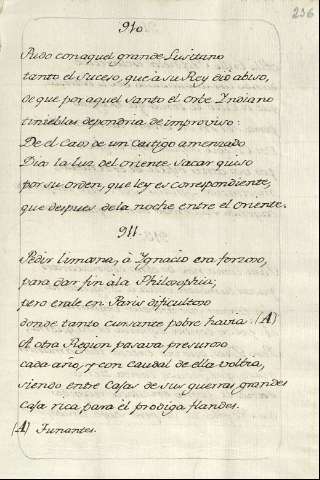 236
910.
Pudo con aquel grande Lusitano
tanto el Suceso, que à su Rey diò abiso,
de que por aquel santo el orbe Indiano
tinieblas depondria de improviso:
De el Caos de un Castigo amenazado
Dios la luz del oriente sacar quiso
por su orden, que ley es correspondiente,
que despues de la noche entre el oriente.
911.
Pedir limosna, à Ignacio era forzoso,
para dar fin à la Philosophia;
pero erale en Paris dificultoso
donde tanto cursante pobre havia. (A)
A otra Region pasava presuroso
cada año, y con caudal de ella voltia,
siendo entre Casas de sus guerras grandes
Casa rica para èl prodiga flandes.
(A) Junantes.